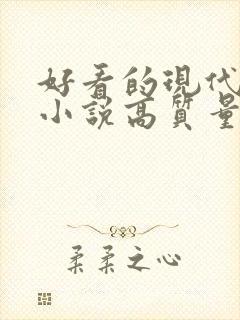 好看的現代
小說高質量
柔柔之心